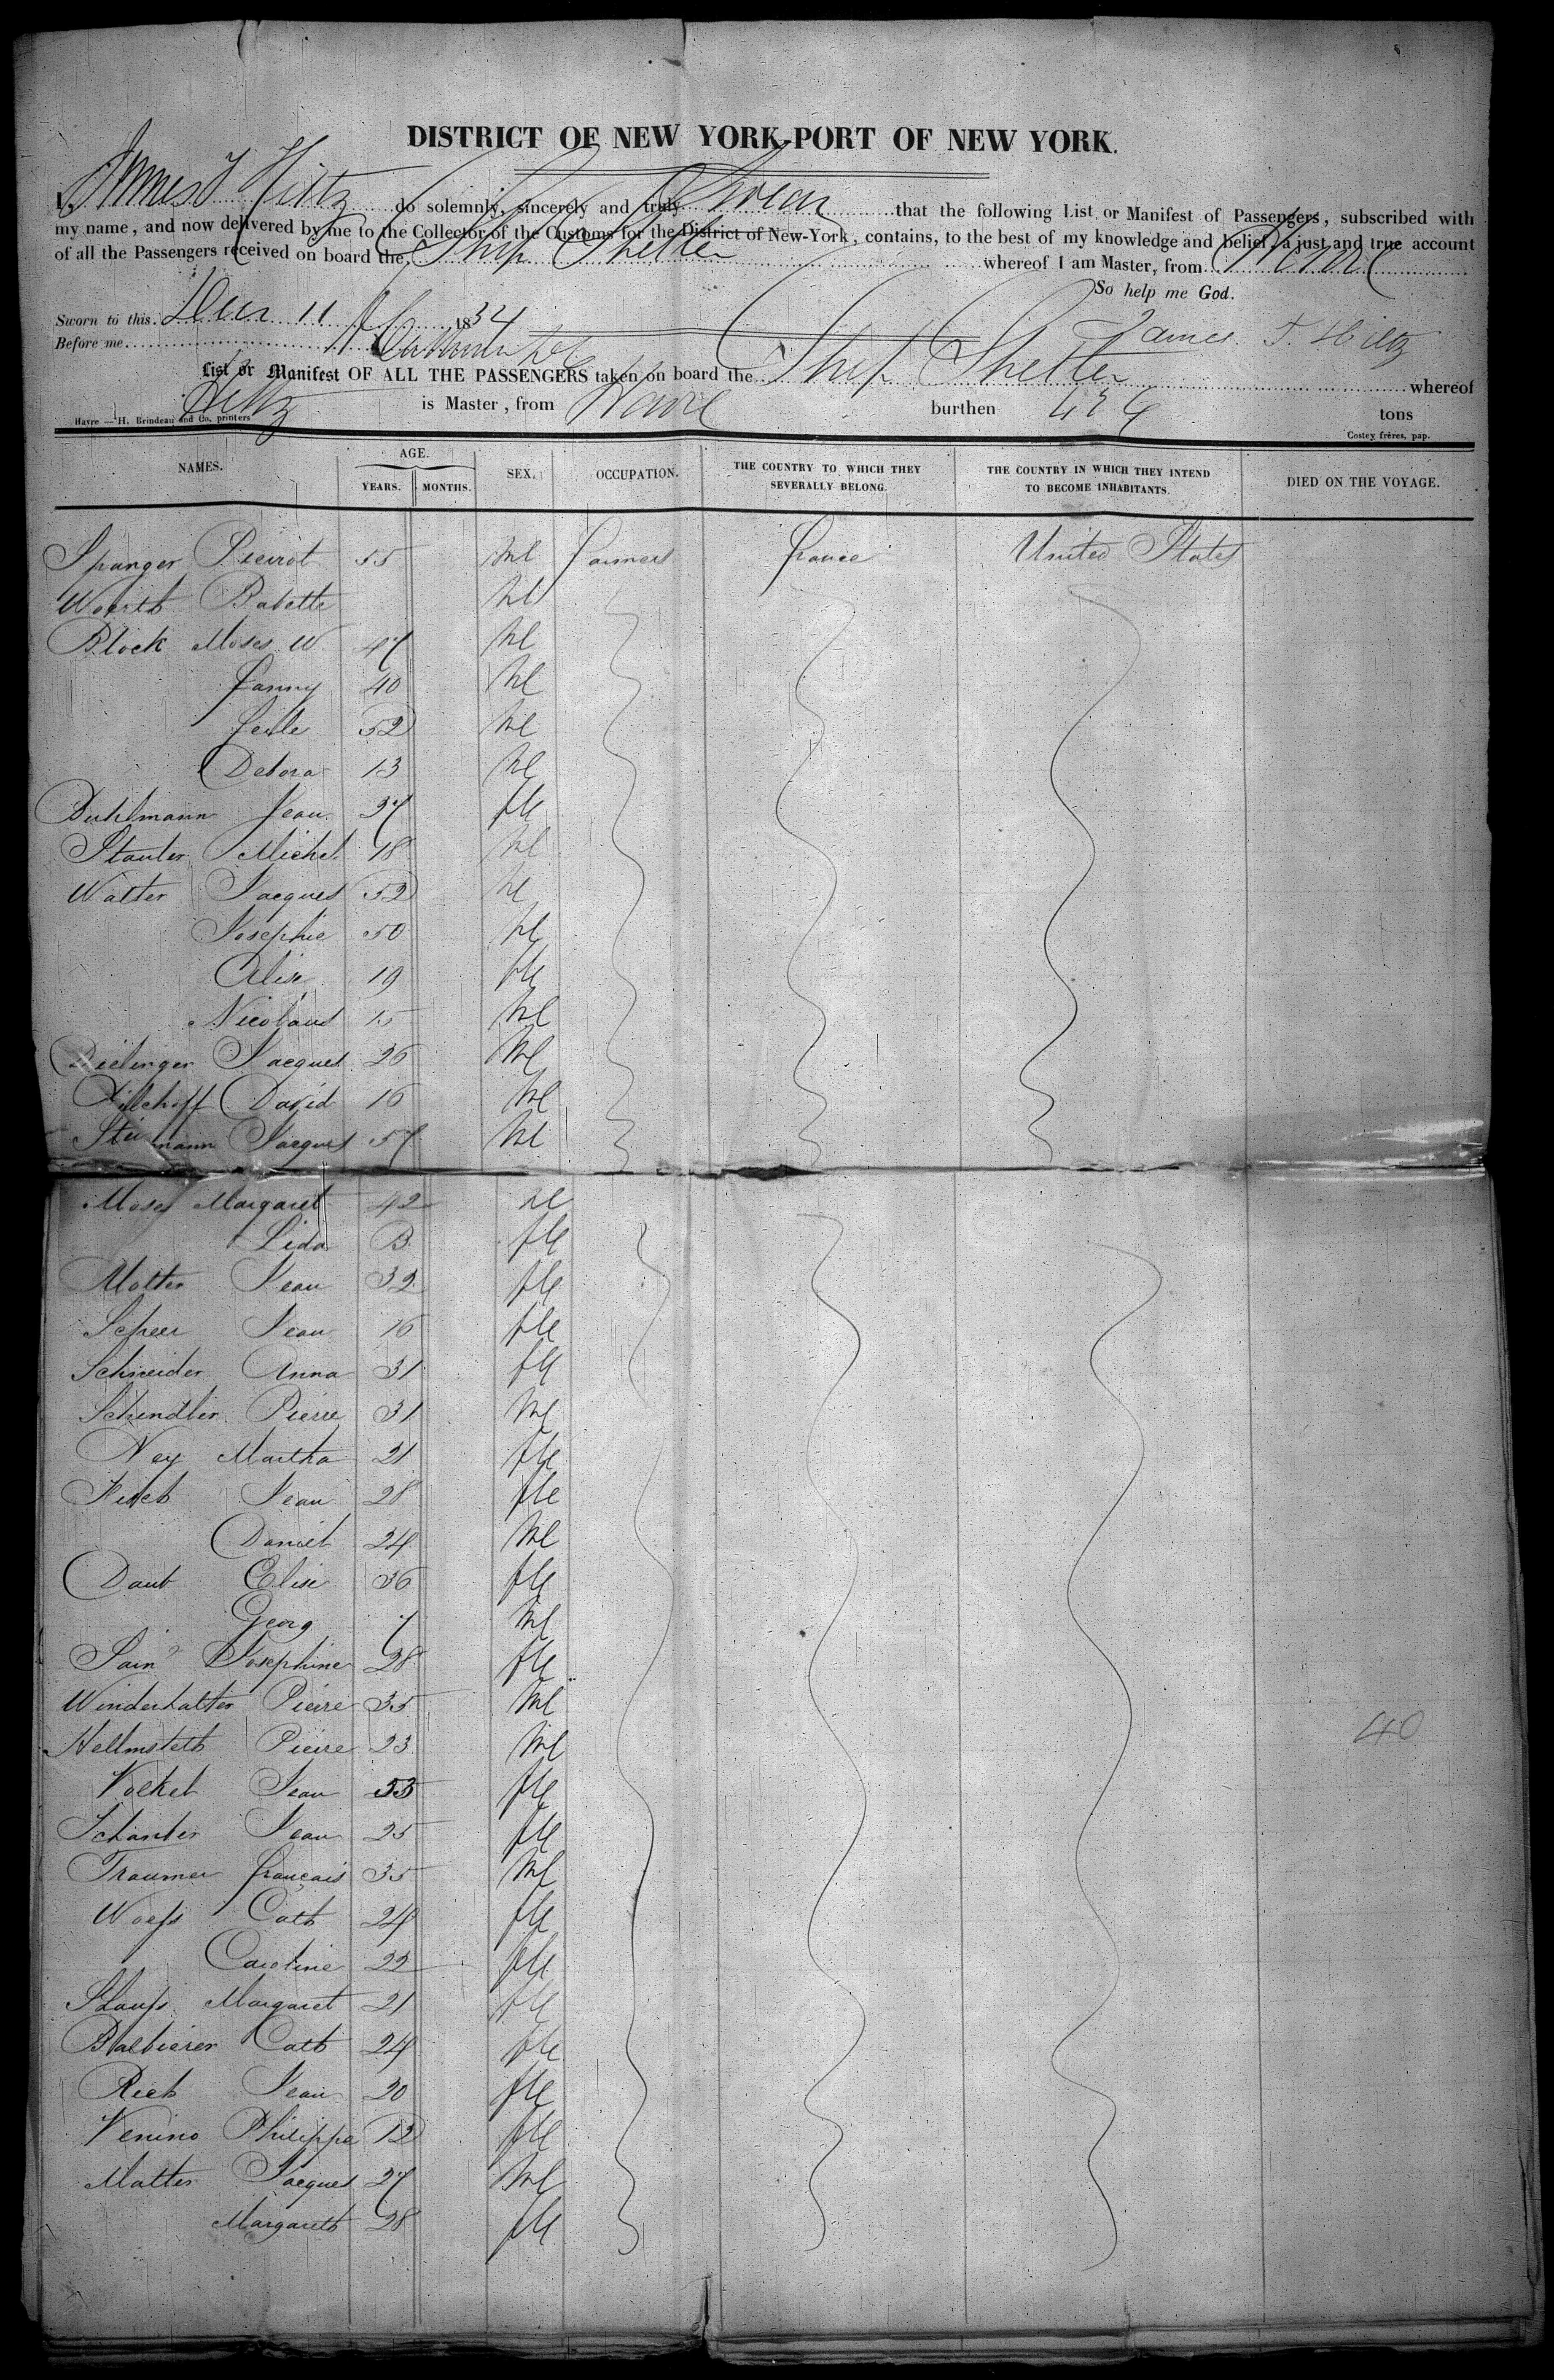 DISTRICT OF NEW YORK-PORT OF NEW YORK.
I, James J Hiltz do solemnly, sincerely and truly Swear that the following List or Manifest of Passengers, subscribed with
my name, and now delivered by me to the Collector of the Customs for the District of New-York, contains, to the best of my knowledge and belief, a just and true account
of all the Passengers received on board the Ship Shelter whereof I am Master, from Havre
So help me God.
Sworn to this Decr 11 1834
Before me
James. J. Hiltz
List or Manifest OF ALL THE PASSENGERS taken on board the Ship Shelter whereof
Hiltz is Master, from Havre burthen tons
Havre — H. Brindeau and Co, printers
Costey frères, pap.
NAMES. AGE. YEARS. MONTHS. SEX. OCCUPATION. THE COUNTRY TO WHICH THEY SEVERALLY BELONG. THE COUNTRY IN WHICH THEY INTEND TO BECOME INHABITANTS. DIED ON THE VOYAGE.
Spanger Pierrot 55 Ml farmers france United States
Woerth Babette Ml
Block Moses W 47 Ml
fanny 40 Ml
52 Ml
Debora 13 Ml
Duhlmann Jean 27 fle
Stauter Michel 18 Ml
Walter Jacques 52 Ml
Josephie 50 Ml
Elise 19 fle
Nicolaus 15 Ml
Jacques 26 Ml
David 16 Ml
Jacques 57 Ml
Moses Margaret 42 Ml
Lida fle
Motter Jean 32 fle
Scheer Jean 16 fle
Schneider Anna 31 fle
Schindler Pierre 31 Ml
Ney Martha 21 fle
Jean 28 fle
Daniel 24 Ml
Daub Elise 36 fle
Georg 7 Ml
Josephine 28 fle
Winderhalter Pierre 35 Ml
Hellmsteth Pierre 23 Ml 40
Voelkel Jean 53 fle
Schanter Jean 25 fle
Traumer francais 35 Ml
Woess Cath 24 fle
Caroline 22 fle
Stauss Margaret 21 fle
Balbierer Cath 24 fle
Rieb Jean 20 fle
Venino Philippe 12 fle
Matter Jacques 27 Ml
Margareth 28 fle